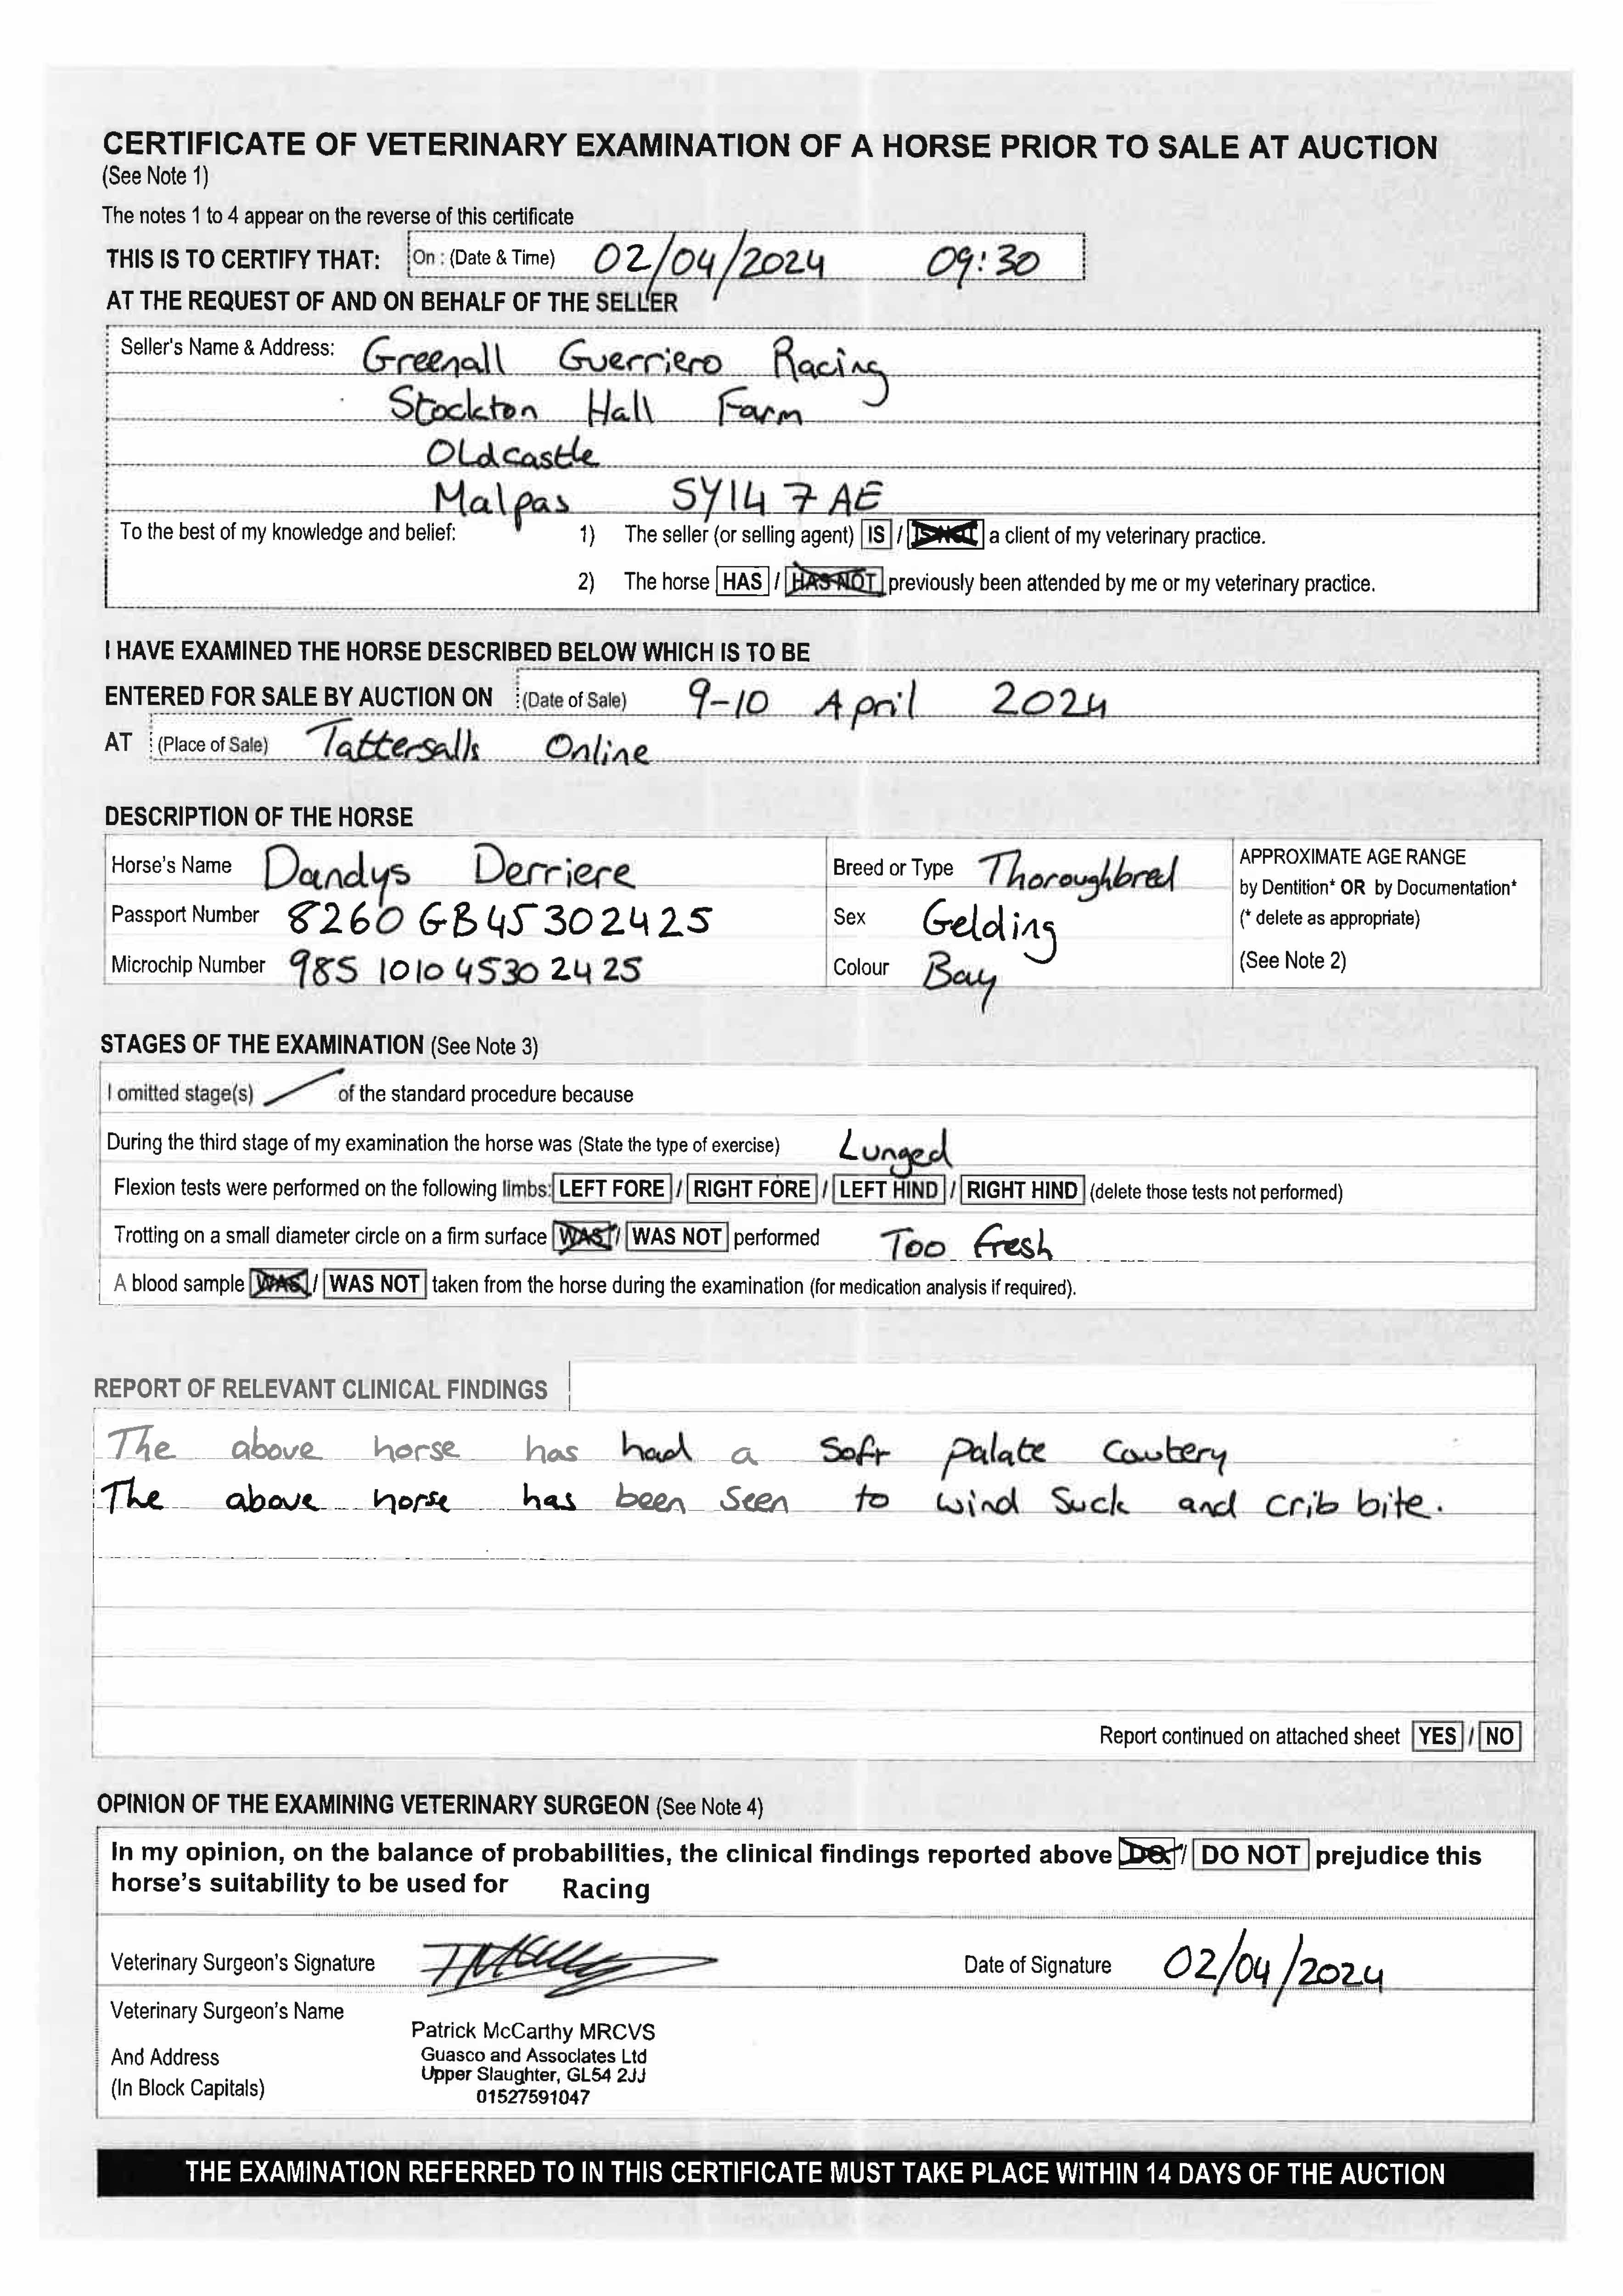 CERTIFICATE OF VETERINARY EXAMINATION OF A HORSE PRIOR TO SALE AT AUCTION
(See Note 1)
The notes 1 to 4 appear on the reverse of this certificate
THIS IS TO CERTIFY THAT: On : (Date & Time) 02/04/2024 09:30
AT THE REQUEST OF AND ON BEHALF OF THE SELLER
Seller's Name & Address: Greenall Guerriero Racing
Stockton Hall Farm
Oldcastle
Malpas SY14 7AE
To the best of my knowledge and belief: 1) The seller (or selling agent) IS / IS NOT a client of my veterinary practice.
2) The horse HAS / HAS NOT previously been attended by me or my veterinary practice.
I HAVE EXAMINED THE HORSE DESCRIBED BELOW WHICH IS TO BE
ENTERED FOR SALE BY AUCTION ON (Date of Sale) 9-10 April 2024
AT (Place of Sale) Tattersalls Online
DESCRIPTION OF THE HORSE
Horse's Name Dandys Derriere Breed or Type Thoroughbred APPROXIMATE AGE RANGE
by Dentition* OR by Documentation*
Passport Number 8260GB45302425 Sex Gelding (* delete as appropriate)
Microchip Number 985101045302425 Colour Bay (See Note 2)
STAGES OF THE EXAMINATION (See Note 3)
I omitted stage(s) / of the standard procedure because
During the third stage of my examination the horse was (State the type of exercise) Lunged
Flexion tests were performed on the following limbs: LEFT FORE / RIGHT FORE / LEFT HIND / RIGHT HIND (delete those tests not performed)
Trotting on a small diameter circle on a firm surface WAS / WAS NOT performed Too fresh
A blood sample WAS / WAS NOT taken from the horse during the examination (for medication analysis if required).
REPORT OF RELEVANT CLINICAL FINDINGS
The above horse has had a soft palate cautery
The above horse has been seen to wind suck and crib bite.
Report continued on attached sheet YES / NO
OPINION OF THE EXAMINING VETERINARY SURGEON (See Note 4)
In my opinion, on the balance of probabilities, the clinical findings reported above DO / DO NOT prejudice this
horse's suitability to be used for Racing
Veterinary Surgeon's Signature Date of Signature 02/04/2024
Veterinary Surgeon's Name
Patrick McCarthy MRCVS
And Address Guasco and Associates Ltd
Upper Slaughter, GL54 2JJ
(In Block Capitals) 01527591047
THE EXAMINATION REFERRED TO IN THIS CERTIFICATE MUST TAKE PLACE WITHIN 14 DAYS OF THE AUCTION